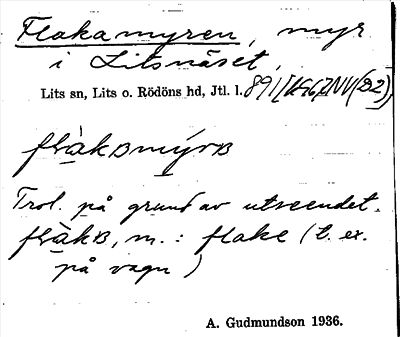 Flakamyren, myr
i Litsnäset,
Lits sn, Lits o. Rödöns hd, Jtl. l.
flàkʙmýrʙ
Trol. på grund av utseendet.
flàkʙ, m.: flake (t. ex.
på vagn)
A. Gudmundson 1936.